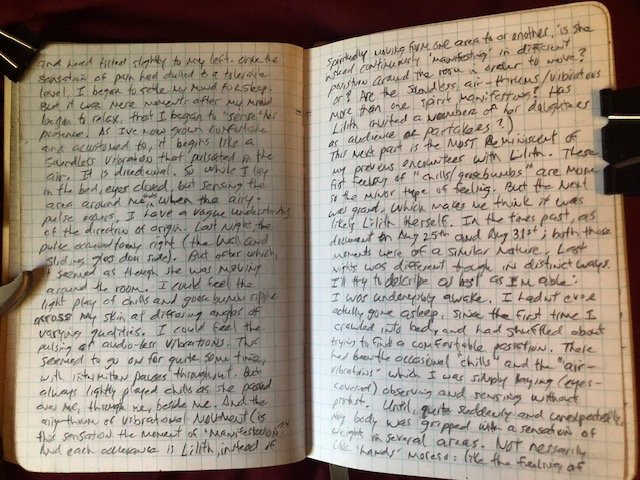 and head tilted slightly to my left. Once the
sensation of pain had dulled to a tolerable
level, I began to settle my mind for sleep.
But it was mere moments after my mind
began to relax, that I began to "sense" her
presence. As I've now grown comfortable
and accustomed to, it begins like a
soundless vibration that pulsated in the
air. It is directional. So while I lay
in the bed, eyes closed, but sensing the
area around me, when the airy-
pulse occurs, I have a vague understanding
of the direction of origin. Last night, the
pulse occurred to my right (the wall and
sliding glass door side). But after which,
it seemed as though she was moving
around the room. I could feel the
light play of chills and goose bumps ripple
across my skin at differing angles of
varying qualities. I could feel the
pulsing of audio-less vibrations. This
seemed to go on for quite some time,
with intermitten pauses throughout. But
always lightly played chills as she passed
over me, through me, beside me. And the
airy-thrum of vibrational movement (is
this sensation the moment of "manifestation"
And each occurence is Lilith, instead of
spiritually moving form one area to another, is she
instead continuously "manifesting" in different
position around the room in order to move?
Or? Are the soundless, air-thrums/vibrations
more than one spirit manifesting? Has
Lilith invited a number of her daughters
as audience or partakers?)
This next part is the most reminiscent of
my previous encounters with Lilith. These
fist feelings of "chills/goosebumbs" are more
so the minor type of feeling. But the next
was grand, which makes me think it was
likely Lilith herself. In the times past, as
document on Aug 25th and Aug 31st; both those
moments were of a similar nature. Last
nights was different though, in distinct ways.
I'll try to describe as best as I'm able:
I was undenyibly awake. I hadn't ever
actually gone asleep, since the first time I
crawled into bed, and had shuffled about
trying to find a comfortable position. There
had been the occasional "chills" and the "air-
vibrations" which I was simply laying (eyes-
covered) observing and sensing without
protest. Until, quite suddenly and unexpectedly,
my body was gripped with a sensation of
weight in several areas. Not nessarily
like "hands" moreso: like the feeling of